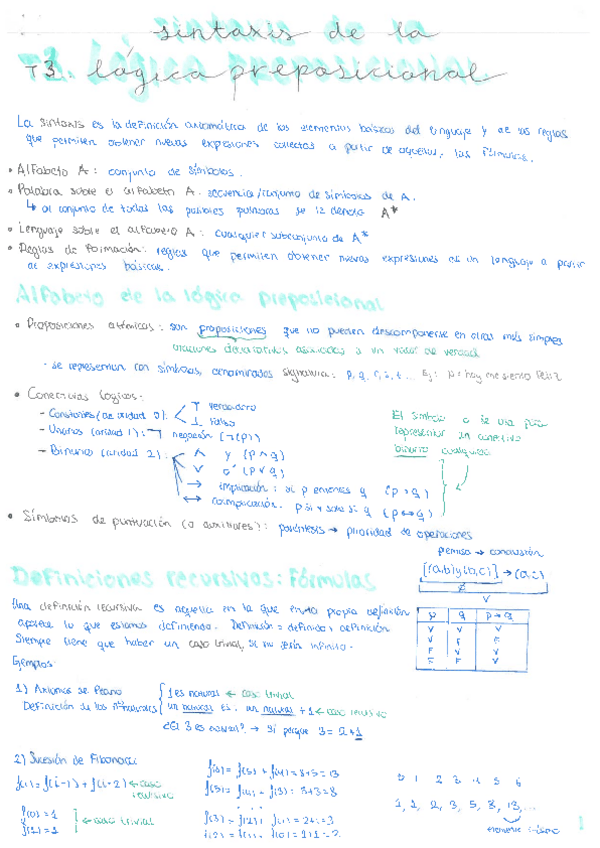 sintaxis de la
T3. lógica preposicional
La sintaxis es la definición axiomática de los elementos básicos del lenguaje y de las reglas
que permiten obtener nuevas expresiones correctas a partir de aquellos, las fórmulas.
• Alfabeto A: conjunto de símbolos.
• Palabra sobre el alfabeto A: secuencia/conjunto de símbolos de A.
↳ al conjunto de todas las posibles palabras se le denota A*
• Lenguaje sobre el alfabeto A: cualquier subconjunto de A*
• Reglas de formación: reglas que permiten obtener nuevas expresiones de un lenguaje a partir
de expresiones básicas.
Alfabeto de la lógica preposicional
• Proposiciones atómicas: son proposiciones que no pueden descomponerse en otras más simples
oraciones declarativas asociadas a un valor de verdad
· se representan con símbolos, denominados signatura: p, q, r, s, t... Ej: p = hoy me siento feliz
• Conectivas lógicas:
- Constantes (de aridad 0): T verdadero
⊥ falso
- Unarios (aridad 1): ¬ negación (¬(p))
- Binarios (aridad 2): ∧ y (p ∧ q)
∨ o (p ∨ q)
→ implicación: si p entonces q (p → q)
↔ coimplicación: p si y solo si q (p ↔ q)
El símbolo o se usa para
representar un conectivo
binario cualquiera
• Símbolos de puntuación (o auxiliares): paréntesis → prioridad de operaciones
premisa → conclusión
[(a,b) y (b,c)] → (a,c)
V
Definiciones recursivas: Fórmulas
Una definición recursiva es aquella en la que en la propia definición
aparece lo que estamos definiendo. Definición = definido + definición
Siempre tiene que haber un caso trivial, si no sería infinito.
p q p→q
V V V
V F F
F V V
F F V
Ejemplos:
1) Axiomas de Peano { 1 es natural ← caso trivial
Definición de los nº naturales un natural es un natural + 1 ← caso recursivo
¿El 3 es natural? → Sí porque 3 = 2+1
2) Sucesión de Fibonacci
f(i) = f(i-1) + f(i-2) ← caso
recursivo
f(0) = 1
f(1) = 1 ← caso trivial
f(6) = f(5) + f(4) = 8+5 = 13
f(5) = f(4) + f(3) = 5+3 = 8
...
f(3) = f(2) + f(1) = 2+1 = 3
f(2) = f(1) + f(0) = 1+1 = 2
0 1 2 3 4 5 6
1, 1, 2, 3, 5, 8, 13, ...
1